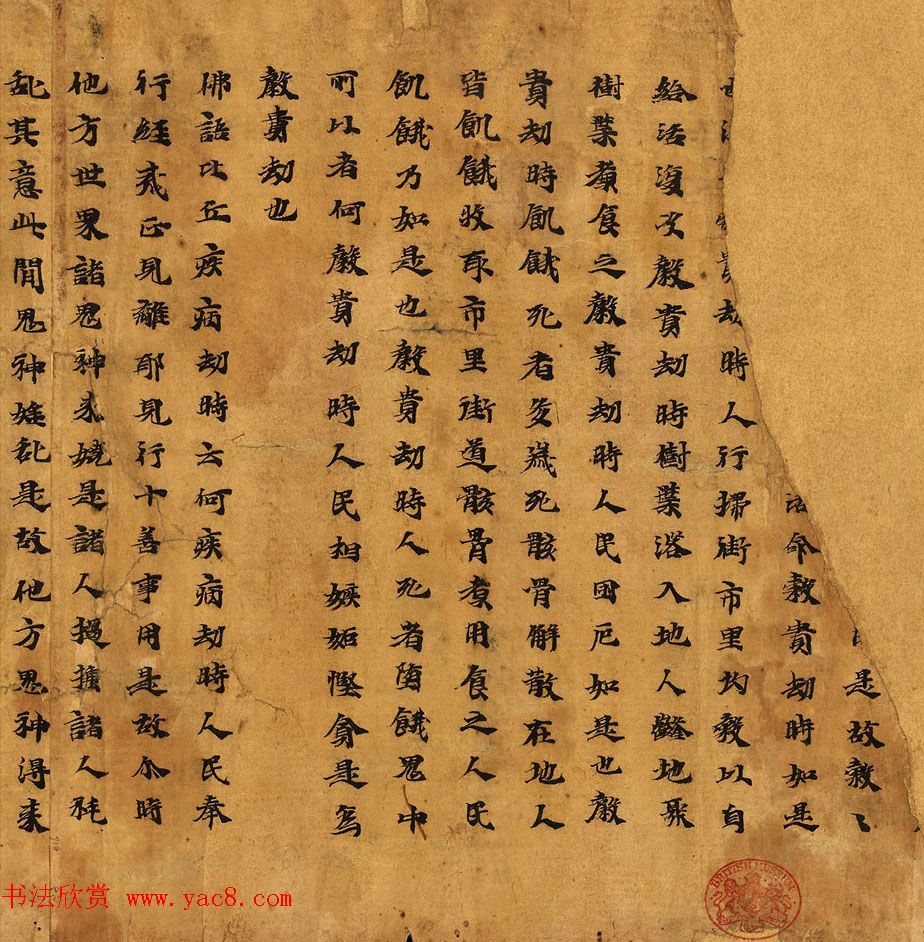 是故穀〻
活命穀貴劫時如是
劫時人行掃街市里均穀以自
給活復次穀貴劫時樹葉落入地人鑿地聚
樹葉煮食之穀貴劫時人民困厄如是也穀
貴劫時飢餓死者死骸骨解散在地人
皆飢餓收取市里街道骸骨煮用食之人民
飢餓乃如是也穀貴劫時人死者墮餓鬼中
所以者何穀貴劫時人民相嫉妬慳貪是為
穀貴劫也
佛語比丘疾病劫時云何疾病劫時人民奉
行經戒正見離耶見行十善事用是故尒時
他方世界諸鬼神來嬈是諸人撾捶諸人耗
乱其意此間鬼神婬乱是故他方鬼神得來
BRITISH MUSEUM
书法欣赏 www.yac8.com